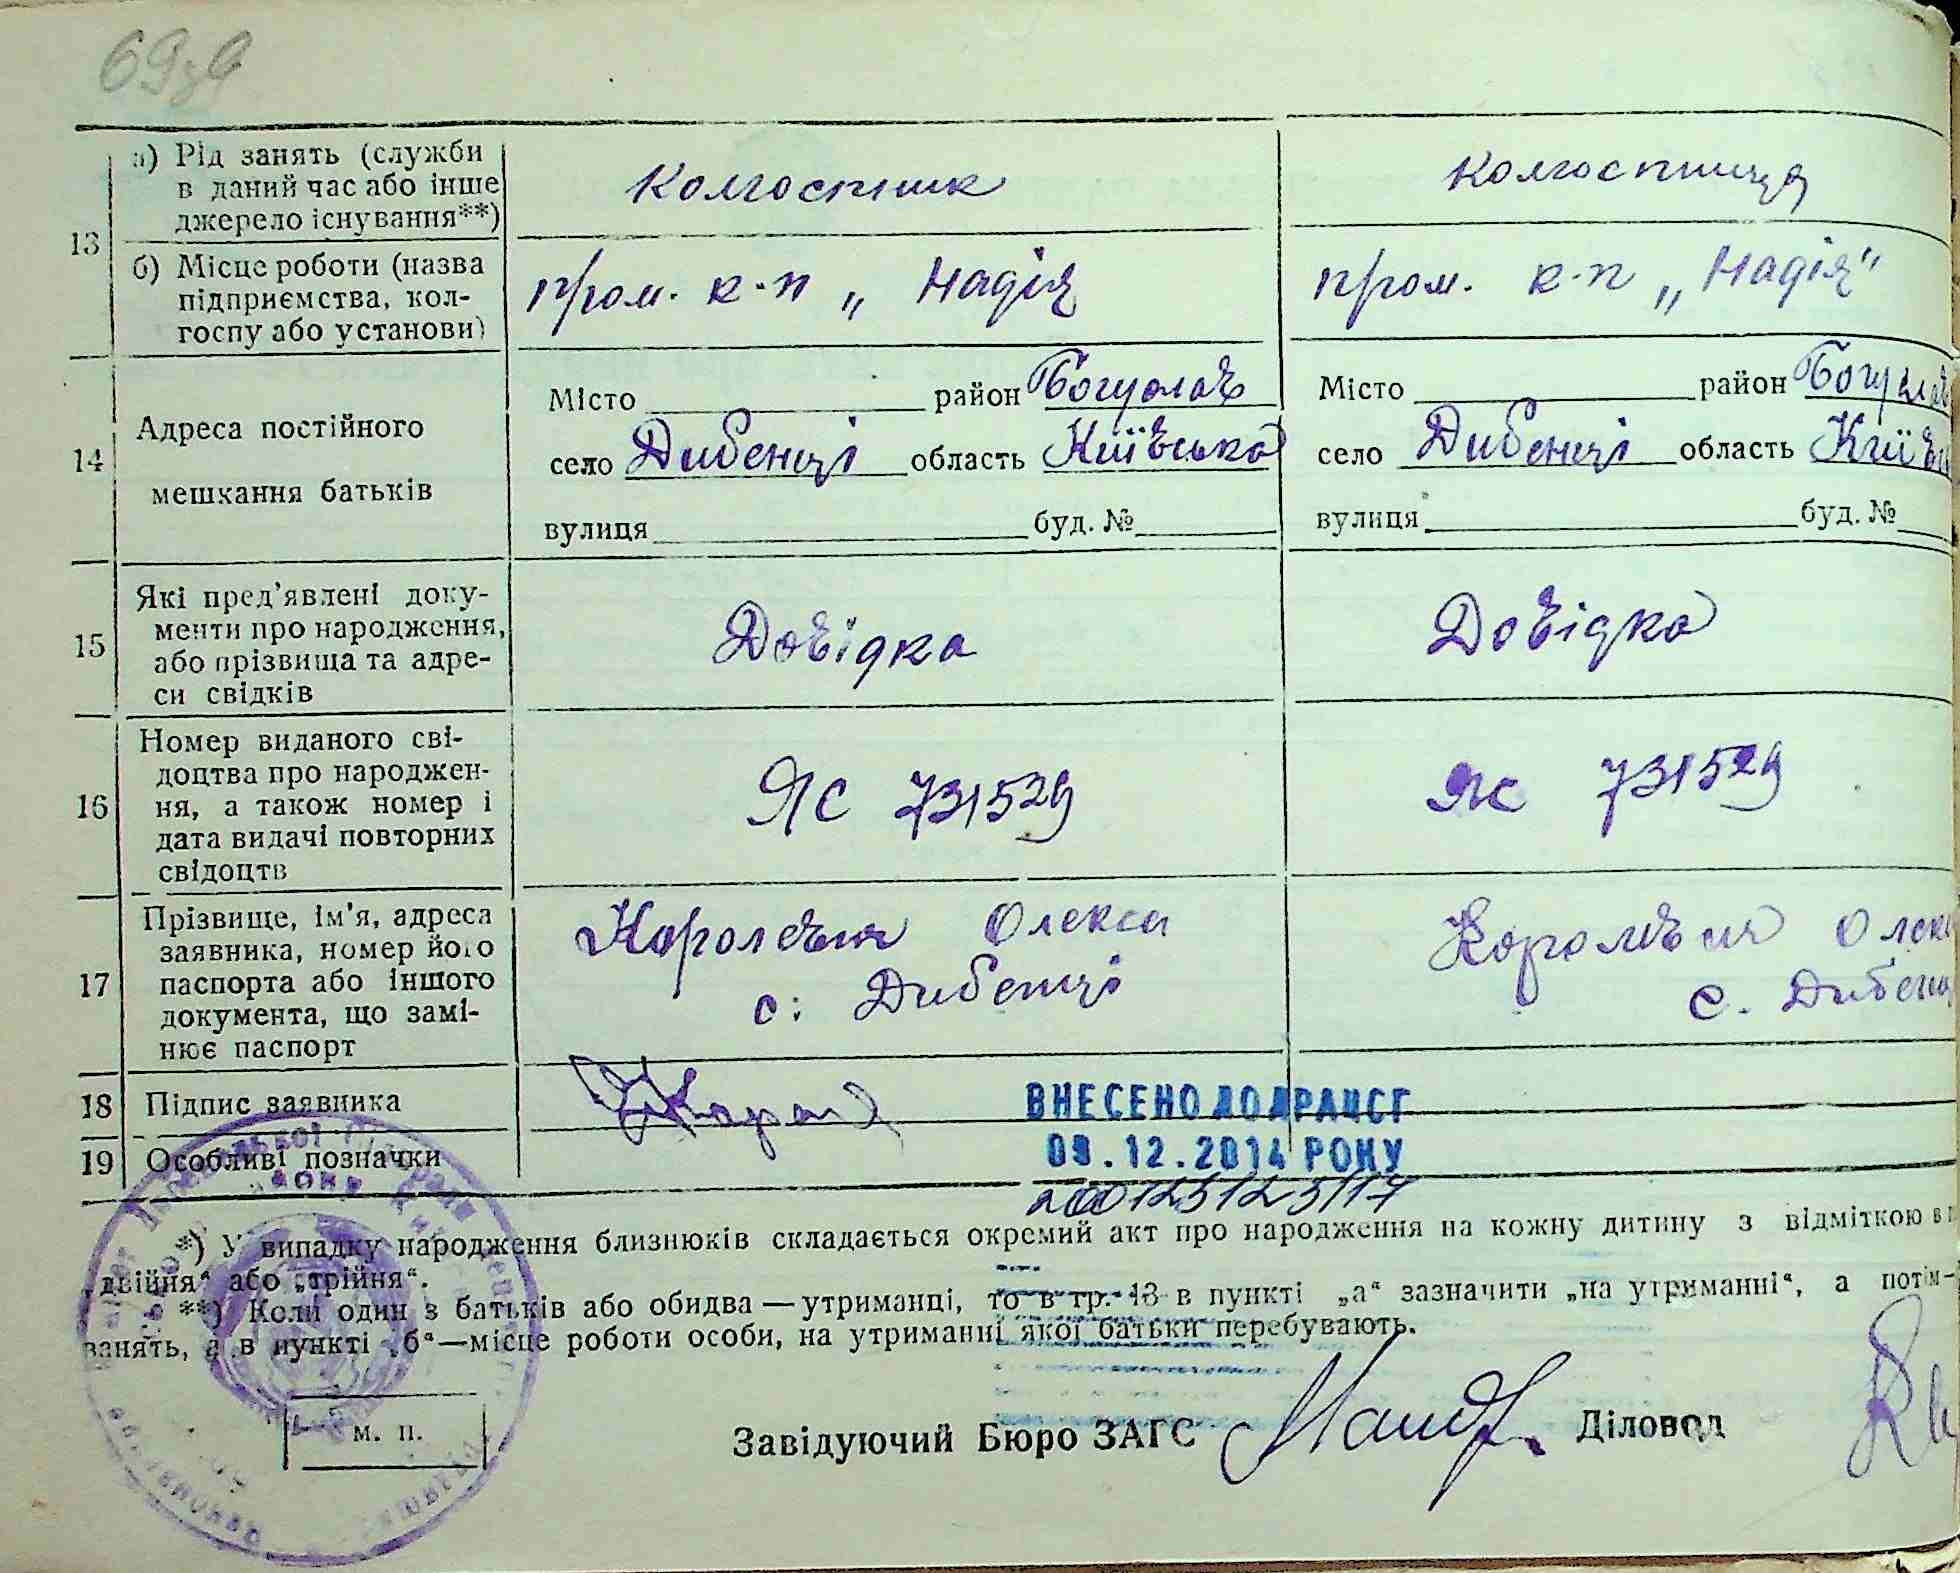 69зв
13
а) Рід занять (служби
в даний час або інше
джерело існування**)
Колгоспник
Колгоспниця
б) Місце роботи (назва
підприємства, кол-
госпу або установи)
пром. к-п „Надія
пром. к-п „Надія"
14
Адреса постійного
мешкання батьків
Місто район Богуслав
село Дибенці область Київська
вулиця буд. №
Місто район Богуслав
село Дибенці область Київ
вулиця буд. №
15
Які пред'явлені доку-
менти про народження,
або прізвища та адре-
си свідків
Довідка
Довідка
16
Номер виданого сві-
доцтва про народжен-
ня, а також номер і
дата видачі повторних
свідоцтв
ЯС 731529
ЯС 731529
17
Прізвище, ім'я, адреса
заявника, номер його
паспорта або іншого
документа, що замі-
нює паспорт
Олекса
с. Дибенці
Олек
с. Дибенц
18 Підпис заявника
ВНЕСЕНО ДО ДРАЦСГ
19 Особливі позначки
09.12.2014 РОКУ
*) У випадку народження близнюків складається окремий акт про народження на кожну дитину з відміткою в г
„двійня" або „трійня".
**) Коли один з батьків або обидва — утриманці, то в гр. 13 в пункті „а" зазначити „на утриманні", а потім—
занять, а в пункті „б"—місце роботи особи, на утриманні якої батьки перебувають.
м. п.
Завідуючий Бюро ЗАГС
Діловод